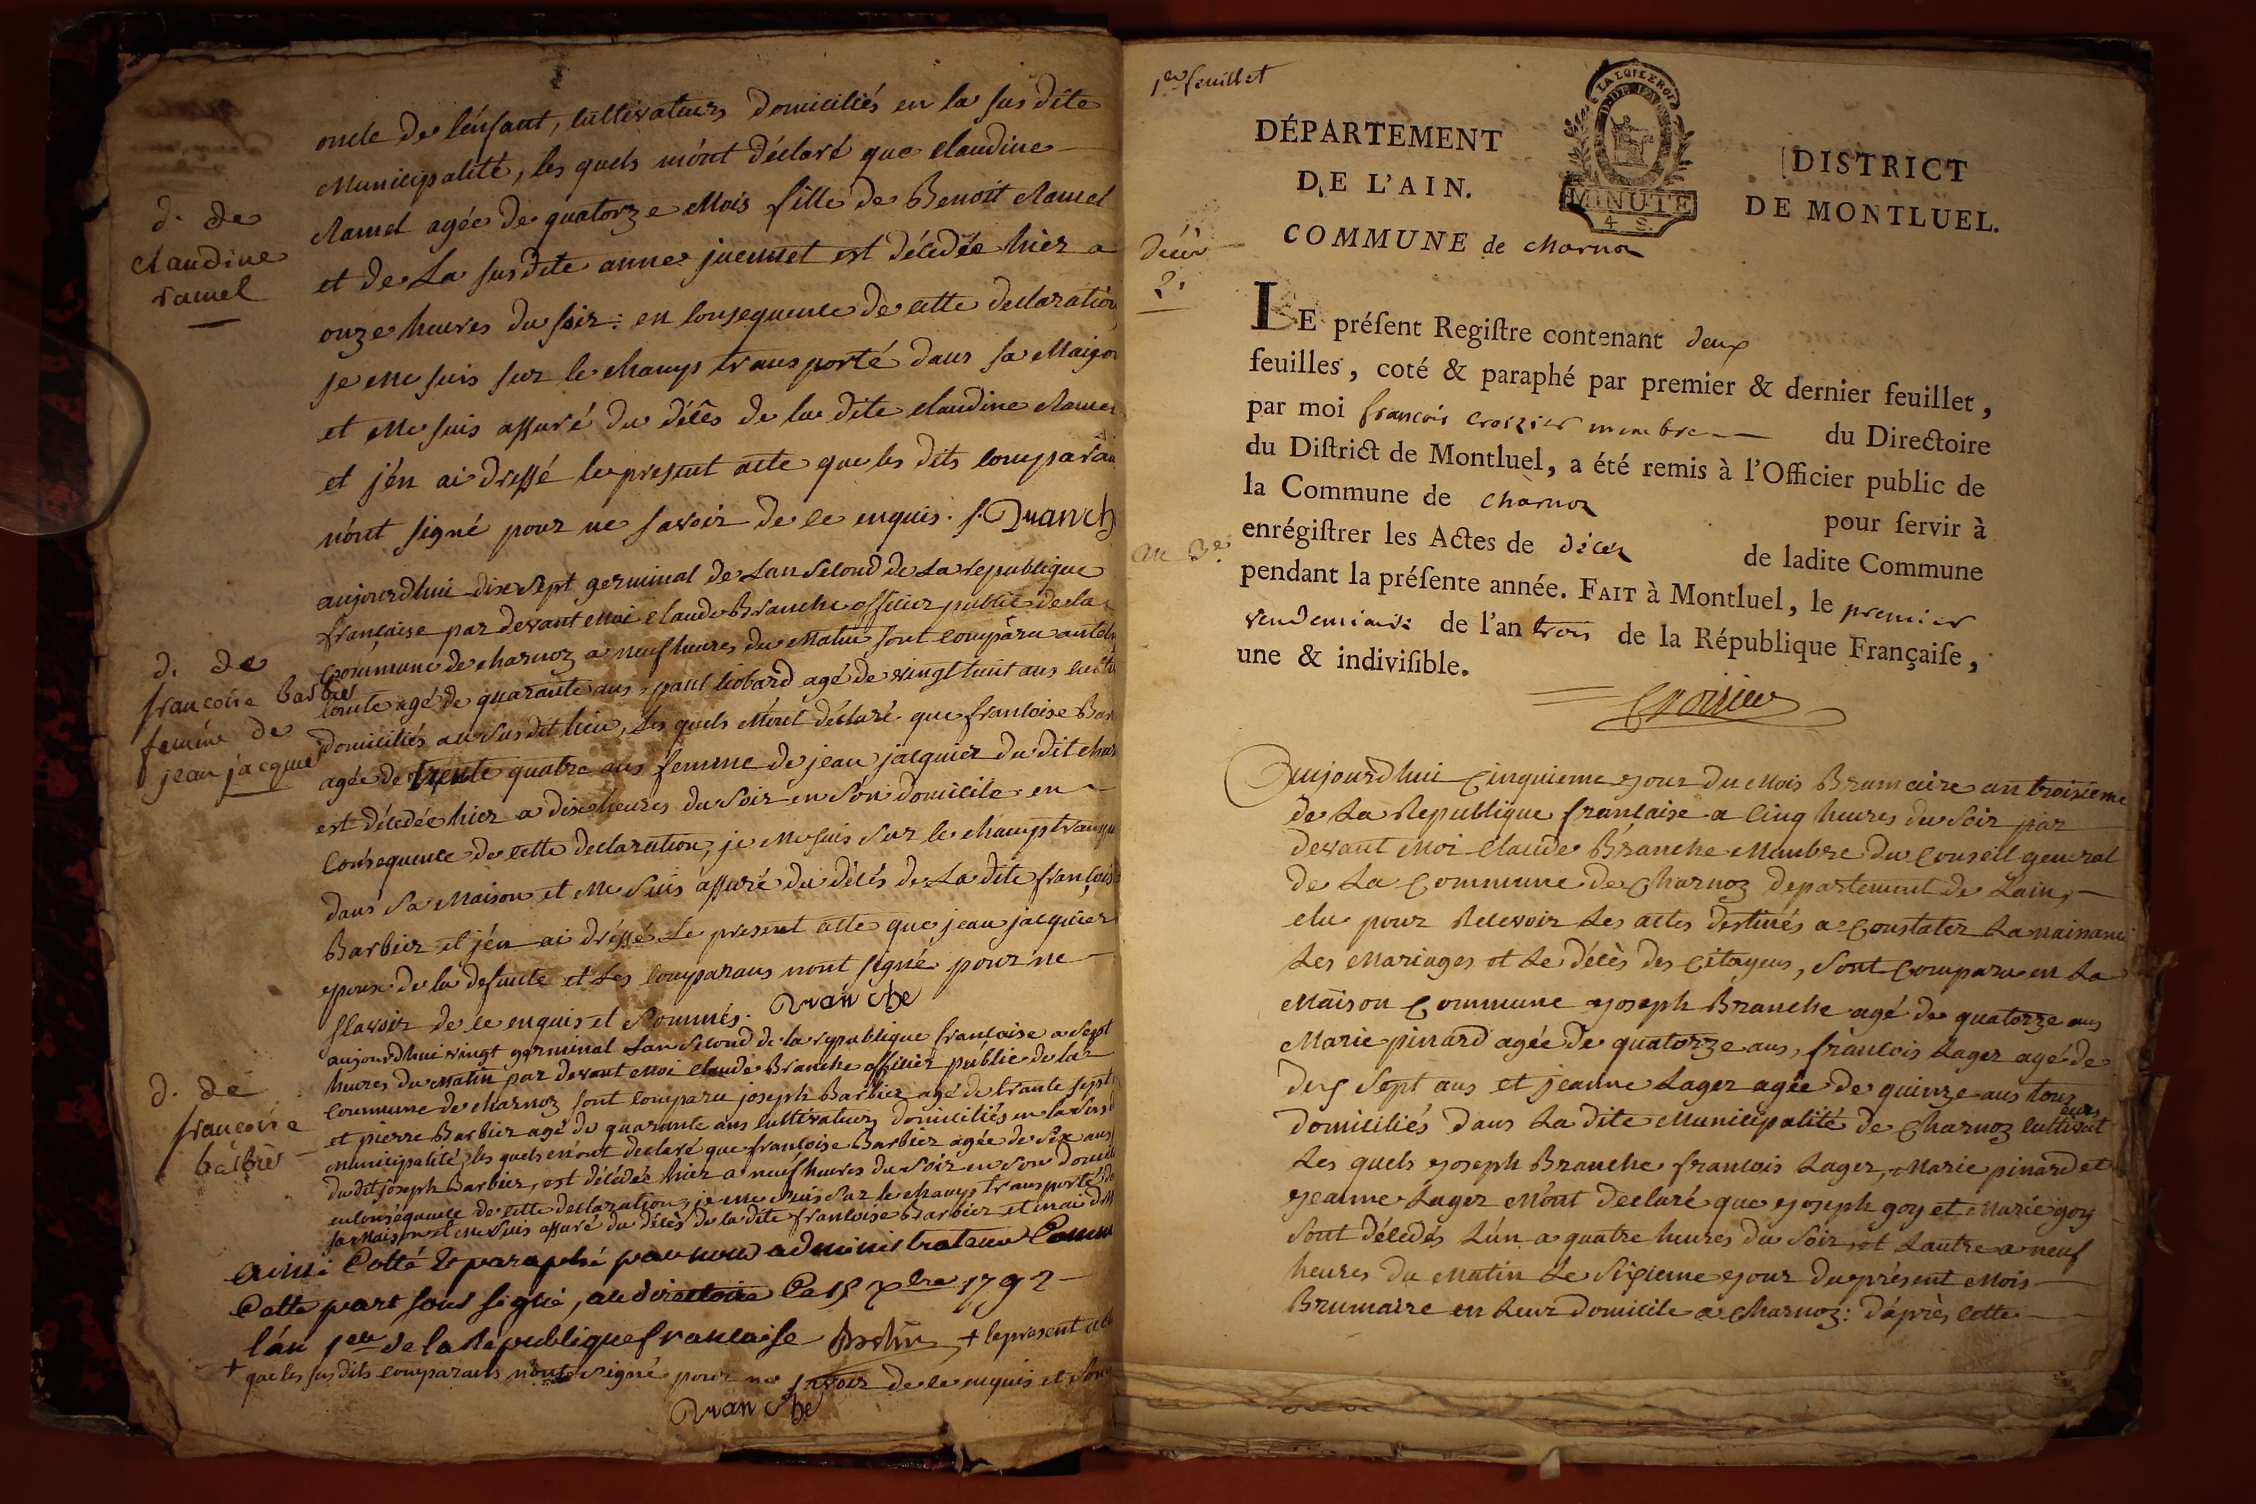 oncle de l'énfant, cultivateurs domiciliés en la sus dite
Municipalité, les quels m'ónt déclaré que claudine
Ramel agée de quatorze Mois fille de Benoit Ramel
et de La susdite anne juennet est décedée hier a
onze heures du soir: en consequence de cette declaration
je me suis sur le champs transporté dans sa Maison
et me suis assuré du décès de la dite claudine Ramel
et j'én ai dressé le present acte que les dits comparan
n'ónt signé pour ne savoir de ce enquis. f. Branch
d. de
claudine
ramel
aujourdhui dix sept germinal de Lan second de La republique
française par devant Moi claude Branche officier public de la
Commune de charnoz a neuf heures du Matin sont comparu antoi
comte agé de quarante ans, paul liobard agé de vingt huit ans culti
domiciliés au susdit lieu, Les quels M'ónt déclaré que francoise Bar
agée de trente quatre ans femme de jean jacquier du dit char
est décedée hier a dix heures du soir en són domicile en
Consequence de cette declaration, je me suis sur le champ transpo
dans sa Maison et Me suis assuré du décès de La dite françois
Barbier et j'én ai dréssé Le present acte que jean jacquier
epoux de la defunte et Les comparans nont signé pour ne
sçavoir de ce enquis et sommés. Branche
d. de
francoise barbier
femme de
jean jacquier
aujourdhui vingt germinal Lan second de la republique francaise a sept
heures du matin par devant moi claude Branche officier public de la
commune de charnoz sont comparu joseph Barbier agé de trante sept
et pierre Barbier agé de quarante ans cultivateurs domiciliés en la sus d
municipalité, les quels m'ónt declaré que francoise Barbier agée de six ans
du dit joseph Barbier, est décedée hier a neuf heures du soir en son domic
en conséquence de cette declaration, je me suis sur le champ transporté d
sa Maison et me suis assuré du décès de la dite francoise Barbier et n ai d
d. de
françoise
barbier
ainsi Cotté & paraphé par nous administrateur Comm
Cette part sous signé, au directoire Ce 15 xbre 1792
l'an 1er de la République francaise + le present acte
+ que les sus dits comparants nont signé pour ne savoir de ce enquis et som
Branche
1er feuillet
DÉPARTEMENT
DE L'AIN.
COMMUNE de charnoz
LA LOI LE ROI
MINUTE
4 S.
DISTRICT
DE MONTLUEL.
décès
2.
LE préſent Regiſtre contenant deux
feuilles, coté & paraphé par premier & dernier feuillet,
par moi françois croizier membre du Directoire
du Diſtrict de Montluel, a été remis à l'Officier public de
la Commune de charnoz pour ſervir à
enrégiſtrer les Actes de décès de ladite Commune
pendant la préſente année. FAIT à Montluel, le premier
vendemiaire de l'an trois de la République Françaiſe,
une & indiviſible.
an 3e
Croizier
Aujourdhui Cinquieme jour du Mois Brumaire an troisième
de La Republique francaise a Cinq heures du soir par
devant Moi Claude Branche Membre du Conseil general
de La Commune de Charnoz departement de Lain,
elu pour Recevoir Les actes destinés a Constater La naissance
Les Mariages et Le décès des Citayens, sont Comparu en La
Maison Commune joseph Branche agé de quatorze ans
Marie pinard agée de quatorze ans, francois Lager agé de
dix sept ans et jeanne Lager agée de quinze ans tous
domiciliés dans La dite Municipalité de Charnoz cultivateurs
Les quels joseph Branche francois Lager, Marie pinard et
jeanne Lager M'ónt declaré que joseph goy et Marie goy
sont décedés L'ún a quatre heures du soir, et Lautre a neuf
heures du Matin Le sixieme jour du présent Mois
Brumaire en Leur domicile a Charnoz: d'après cette